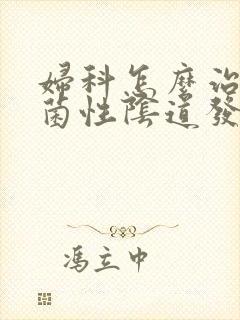 婦科怎麼治
菌性陰道發
馮立中